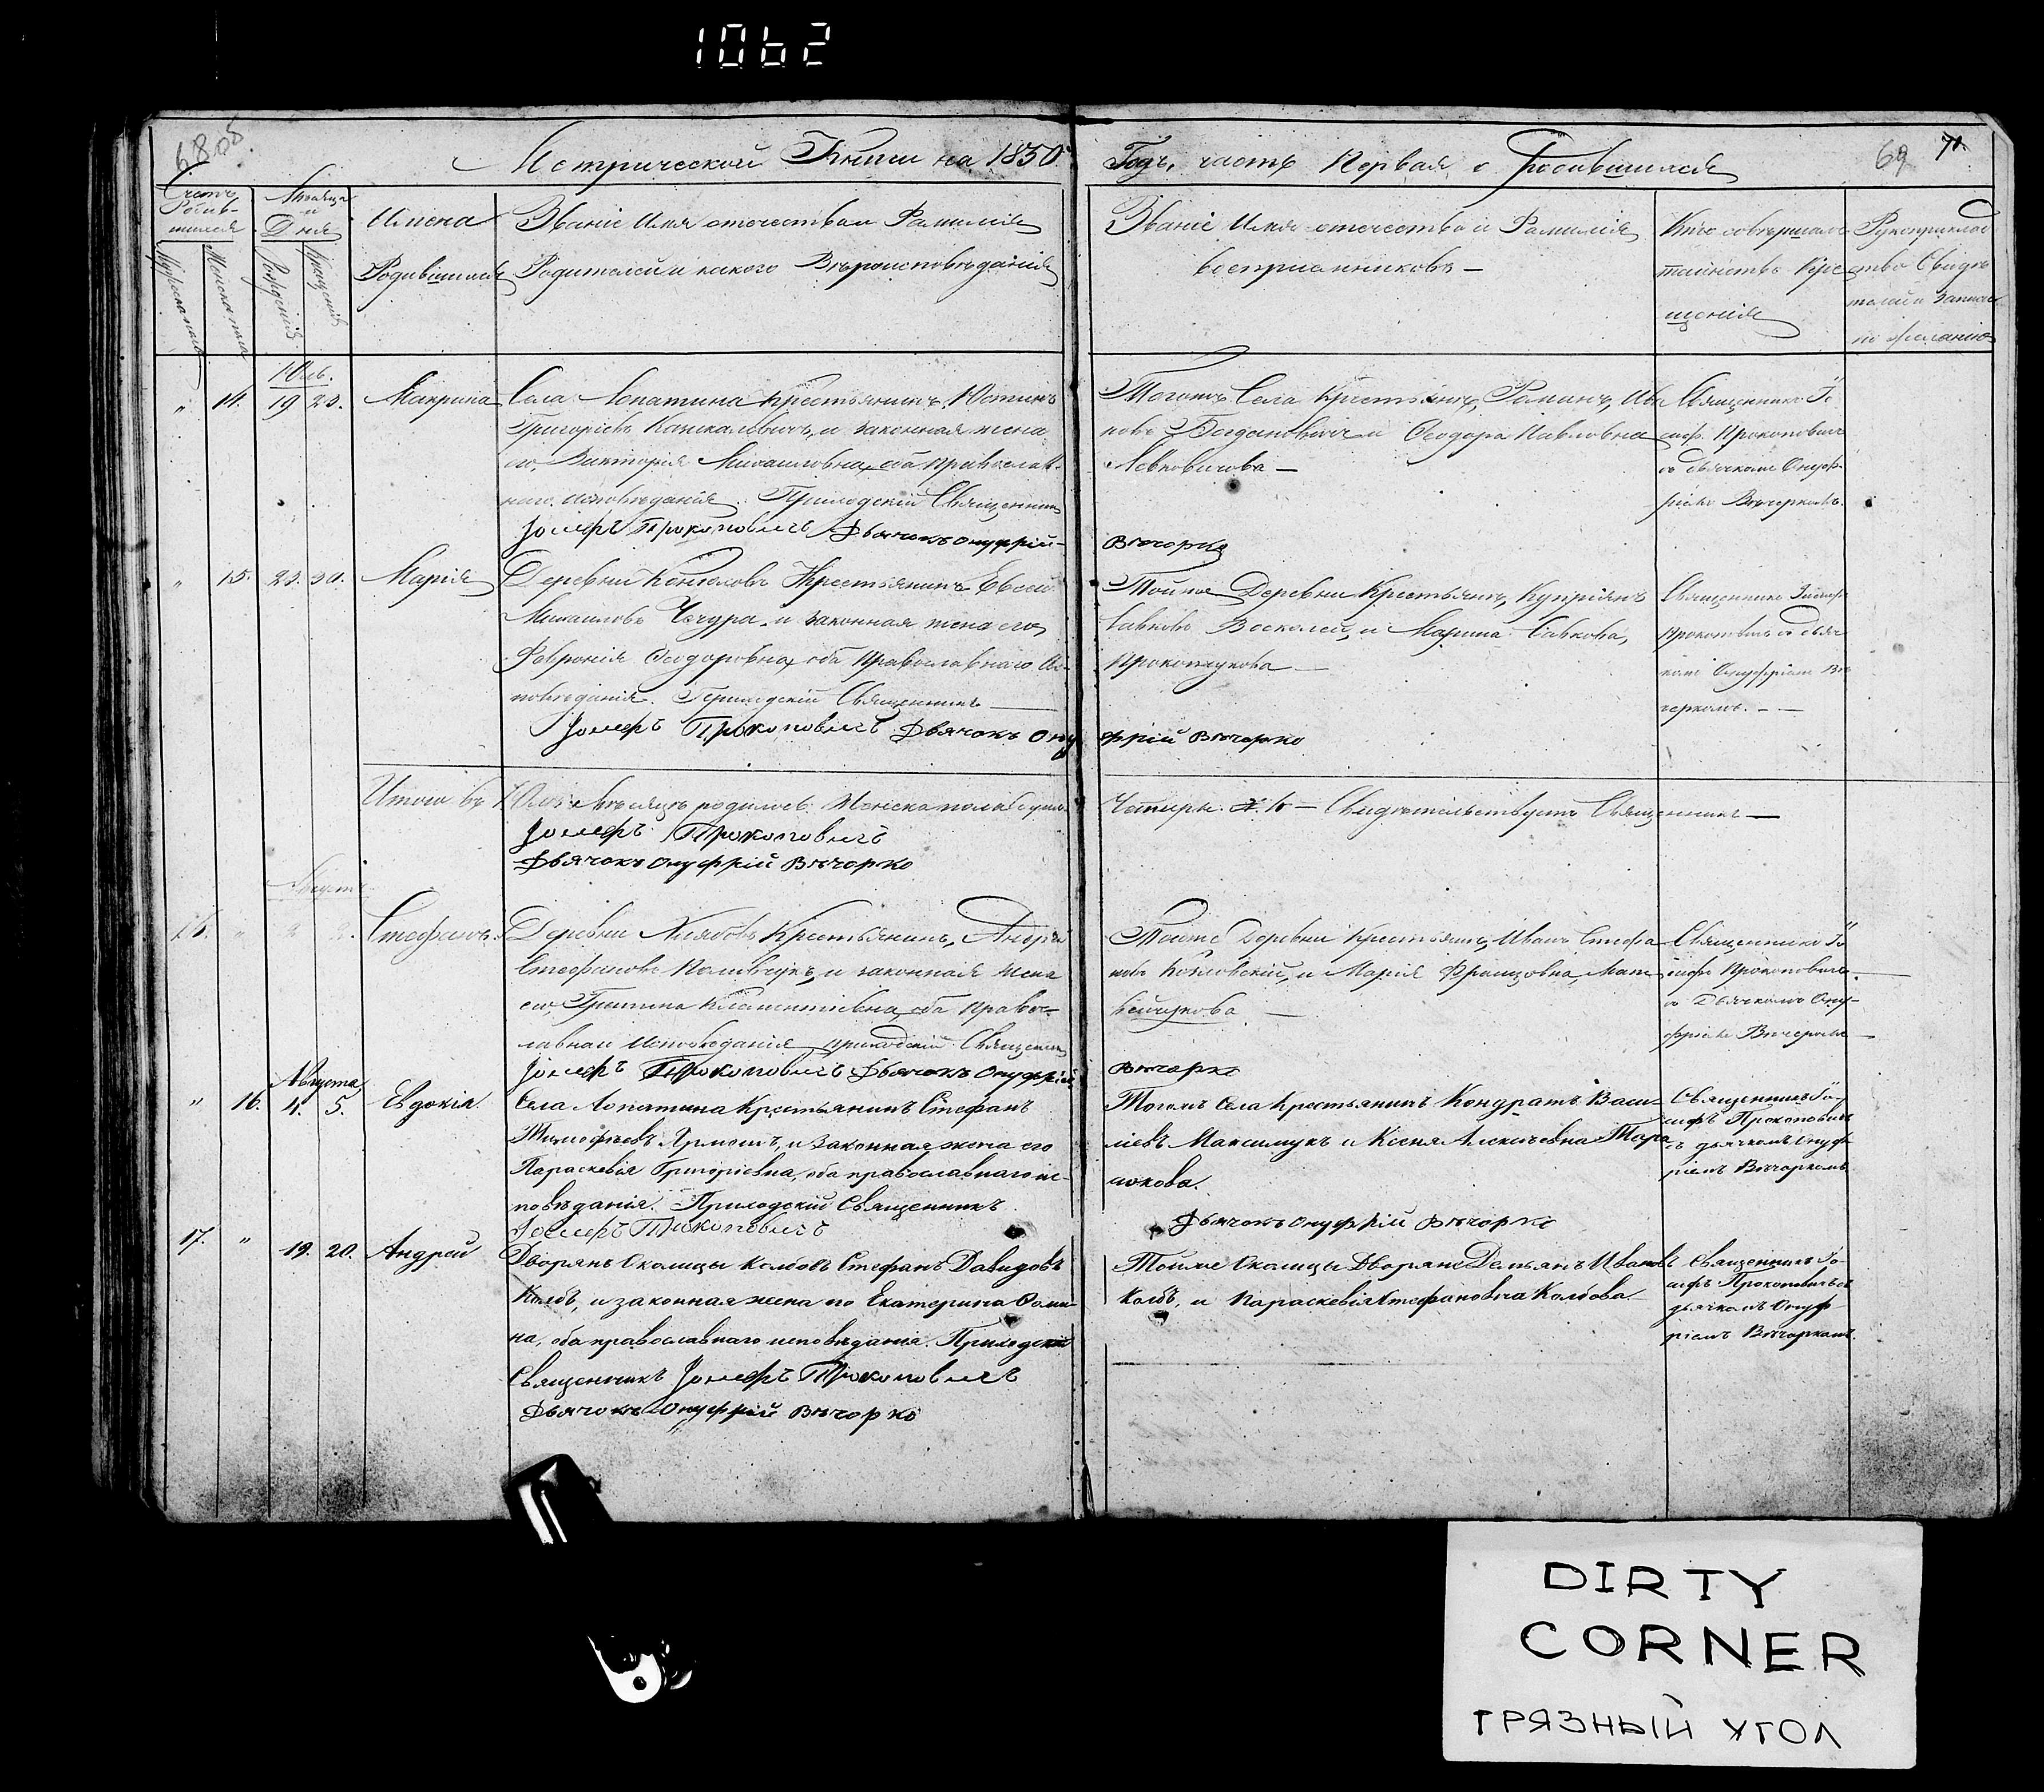 1062
Метрической Книги на 1850
Годъ, часть Первая о Родившихся
69
Счетъ Родив-
шихся
Месяцъ
и
Дня
Имена
Родившихся
Званіе Имя отечество и Фамилія
Родителей и какого Вѣроисповѣданія
Званіе Имя отечество и Фамилія
воспріемниковъ —
Кто совершалъ
таинство Кре
щенія
Рукоприклад
ство Свидѣ
телей о записи
по желанію
Мужеска пола
Женска пола
Рожденія
Крещенія
Юль.
" 14. 19 23. Макрина
Села Лопатина Крестьянинъ Юстинъ
Григорьевъ и законная жена
его Викторія Михаиловна, оба православ-
наго исповѣданія. Приходскій Священникъ
Іосифъ Прокоповичъ Дьячокъ Онуфрій
Вѣчорко
Тогожъ Села Крестьянинъ, Романъ, Ива
новъ Богдановичъ и Ѳеодора Павловна
Левковичова —
Священникъ Іо
сифъ Прокоповичъ
съ дьячкомъ Онуф-
ріемъ Вѣчоркомъ.
" 15. 23. 30. Марія
Деревни Крестьянинъ Евсей
Михаиловъ Чечура и законная жена его
Февронія Ѳеодоровна, оба Православнаго Ис-
повѣданія. Приходскій Священникъ
Іосифъ Прокоповичъ Дьячокъ Ону
фрій Вѣчорко
Тойже Деревни Крестьянинъ, Купріянъ
Савковъ и Марина Савкова,
Прокопчукова —
Священникъ Іосифъ
Прокоповичъ съ дьяч
комъ Онуфріемъ Вѣ
чоркомъ. —
Итого въ Юлѣ Мѣсяцѣ родилось Женска пола
Четыре № 4 — Свидѣтельствуетъ Священникъ —
Іосифъ Прокоповичъ
Дьячокъ Онуфрій Вѣчорко
Августъ
16. " Стефанъ.
Деревни Крестьянинъ, Андрей
Стефановъ Поливчукъ, и законная жена
его, Климентіевна, оба Правос-
лавнаи исповѣданія приходскій Священникъ
Іосифъ Прокоповичъ Дьячокъ Онуфрій
Вѣчорко
Тойже Деревни Крестьянинъ, Иванъ Стефа
новъ Козловскій, и Марія Францовна, Мат
вейчукова —
Священникъ Іо
сифъ Прокоповичъ
съ Дьячкомъ Ону-
фріемъ Вѣчоркомъ
Августа
" 16. 4. 5. Евдокія.
Села Лопатина Крестьянинъ Стефанъ
Тимофеевъ Ярмошъ, и законная жена его
Параскевія Григоріевна, оба православнаго ис-
повѣданія. Приходскій Священникъ
Іосифъ Прокоповичъ
Дьячокъ Онуфрій Вѣчорко
Тогожъ Села Крестьянинъ Кондратъ Васи-
ліевъ Максимукъ и Ксеня Алексѣевна Тара
сюкова.
Священникъ Іо-
сифъ Прокоповичъ
съ дьячкомъ Онуф
ріемъ Вѣчоркомъ
17. " 19. 20. Андрей
Дворянъ Околицы Колбовъ Стефанъ Давидовъ
Колбъ, и законная жена его Екатерина Фоми-
на, оба православнаго исповѣданія. Приходскій
Священникъ Іосифъ Прокоповичъ
Дьячокъ Онуфрій Вѣчорко
Тойже Околицы Дворянъ Демьянъ Ивановъ
Колбъ, и Параскевія Стефановна Колбова.
Священникъ Іо-
сифъ Прокоповичъ съ
дьячкомъ Онуф-
ріемъ Вѣчоркомъ.
DIRTY
CORNER
ГРЯЗНЫЙ УГОЛ